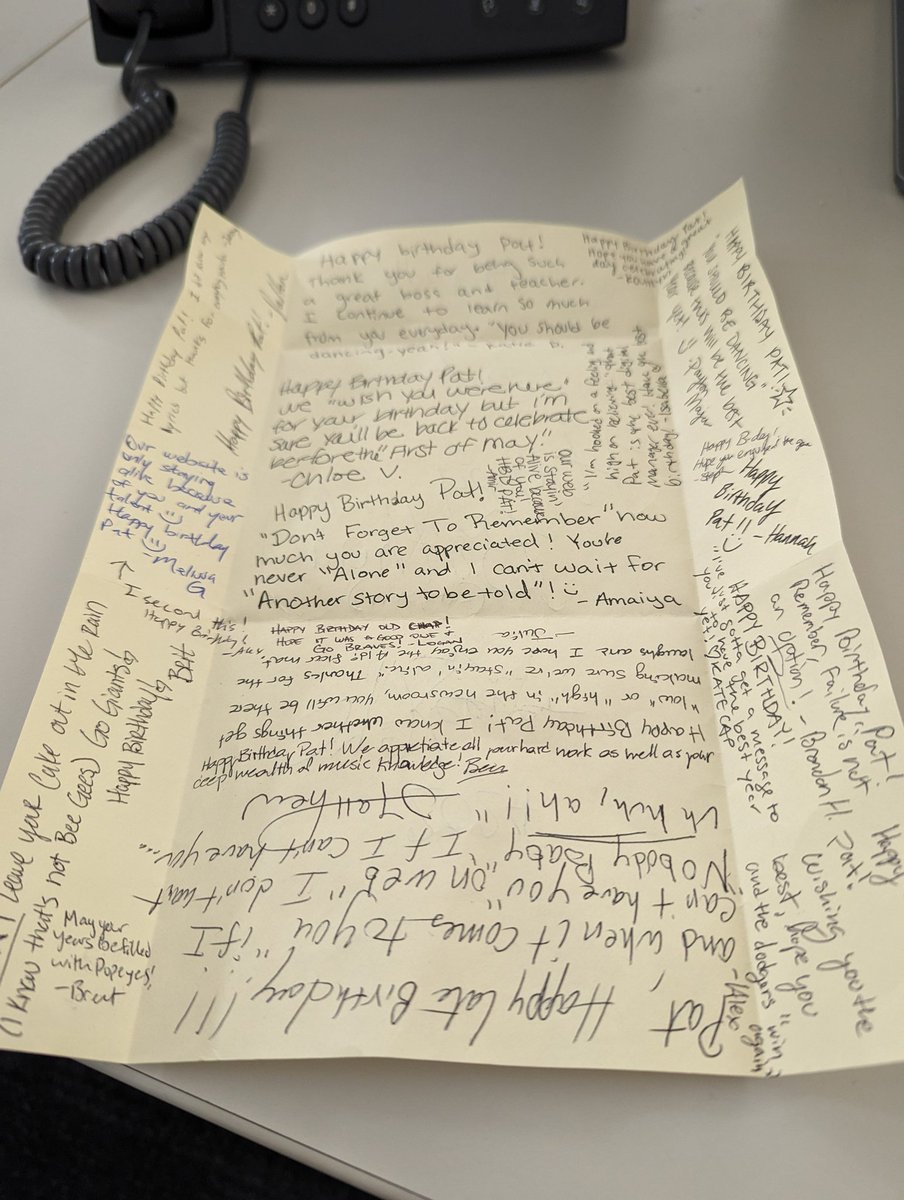 Happy birthday Pat!
Thank you for being such
a great boss and teacher.
I continue to learn so much
from you everyday. "You should be
dancing, yeah!"
Happy Birthday Pat!
Hope you have a
day celebrating
Happy Birthday Pat!
We "wish you were here"
for your birthday but I'm
sure you'll be back to celebrate
before the "First of May."
-Chloe V.
"I'm hooked on a feeling and
high on believing" that
Pat is the best digital
manager ever! Have the best
birthday! -Isabella
our web
is stayin'
Alive because
of you!
HBD PAT!
Happy Birthday Pat!
"Don't Forget To Remember" how
much you are appreciated! You're
never "Alone" and I can't wait for
"Another story to be told"! :)
- Amaiya
HAPPY BIRTHDAY OLD CHAP!
HOPE IT WAS A GOOD ONE &
GO BRAVES! -LOGAN
Happy Birthday Pat! I know whether things get
"low" or "high" in the newsroom, you will be there
making sure we're "stayin' alive." Thanks for the
laughs and I hope you enjoy the
- Julia
Happy Birthday Pat! We appreciate all your hard work as well as your
deep wealth of music knowledge! Ben
Pat,
Happy late Birthday!!!
and when it comes to you "if I
can't have you" on web "I don't want
Nobody Baby! If I can't have you...
Uh huh, ah!!"
Matthew
Happy Birthday Pat!!
Happy Birthday Pat!!
Our website is
only staying
alive because
of you and your
talent :)
Happy birthday
Pat :)
-Melissa
G
↑
I second this!
Happy Birthday!
Britt
Happy Birthday!
Leave your Cake out in the Rain
(I know that's not Bee Gees) Go Giants!
May your
years be filled
with Popeyes!
-Brent
HAPPY BIRTHDAY PAT!!
"YOU SHOULD BE DANCING"
because this will be the best
year yet :)
Happy B-day!
Hope you enjoyed the
Happy
Birthday
Pat!! :)
- Hannah
HAPPY BIRTHDAY!
"I've just gotta get a message to
you" to have the best year
yet! :) KATE CAP
Happy Birthday Pat!
Remember, failure is not
an option! - Brandon H.
Happy
Pat!
Wishing you the
best, hope you
and the dodgers "win"
again
-Alex